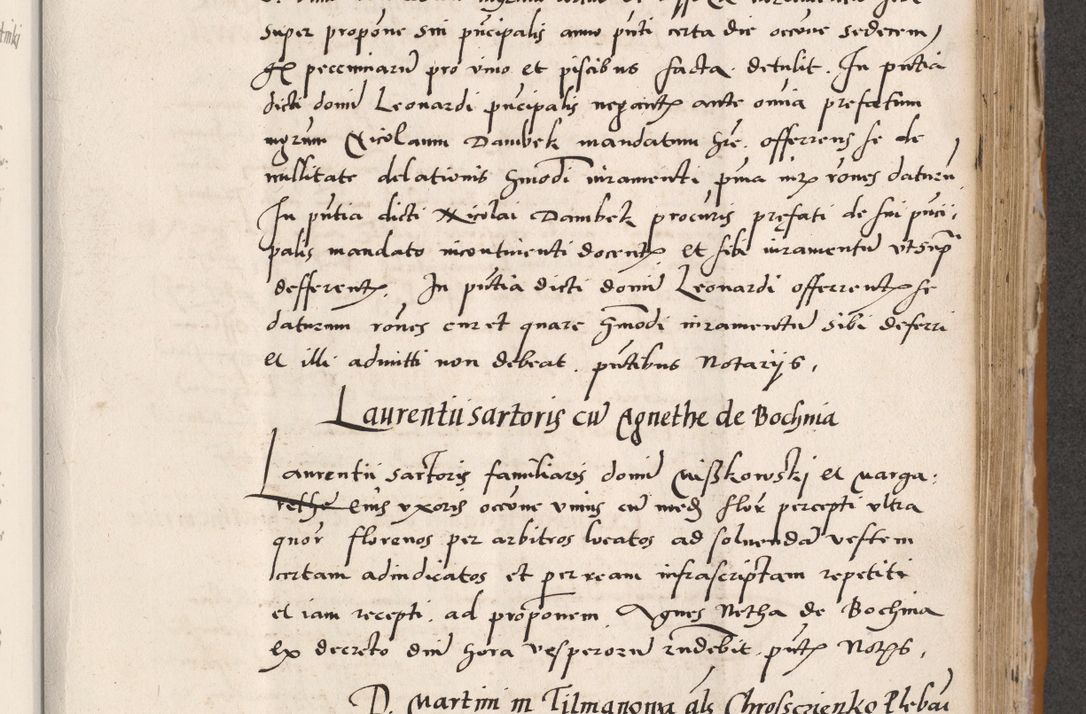 super propone sui pncipalis anno pnti certa die occone sedecem
pecuniaru pro vino et piscibus facta detulit. In pntia
dicti domi Leonardi pncipalis negantx ante omnia prefatum
mgrum Nicolaum Dambek mandatum hre. offerrens se de
nullitate delationis hmodi iuramenti pma iurx rones daturu
In pntia dicti Nicolai Dambek procuris prefati de sui pnci,
palis mandato incontinenti docentx et sibi iuramentu vtsup
defferentx. In pntia dicti domi Leonardi offerrentx se
daturum rones cur et quare hmodi iuramentu sibi deferri
et illi admitti non debeat. pntibus Notarijs,
Laurentii sartoris cu Agnethe de Bochnia
Laurentii sartoris familiaris domi Mißkowskj et Marga:
rethe eius vxoris occone vnius cu medz flor percepti vltra
quor florenos per arbitros locatos ad soluenda vestem
certam adiudicatos et per ream infrascriptam repetiti
et iam recepti. ad proponem Agnes Netha de Bochnia
ex decreto dni hora vesperoru rndebit. pntx Noths,
D. Martini in Tilmanowa als Chrosczienko Pleban